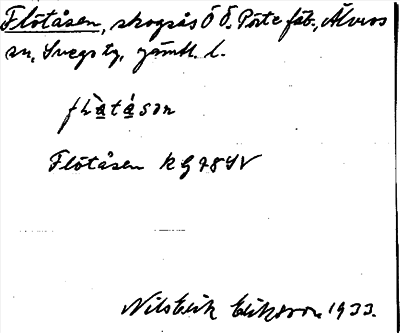 Flötåsen, skogsås Ö Ö. Pörte fäb., Älvros
sn, Svegs tg, Jämtl. l.
Flötåsen K G78SV
Nils Erik Eriksson 1933.